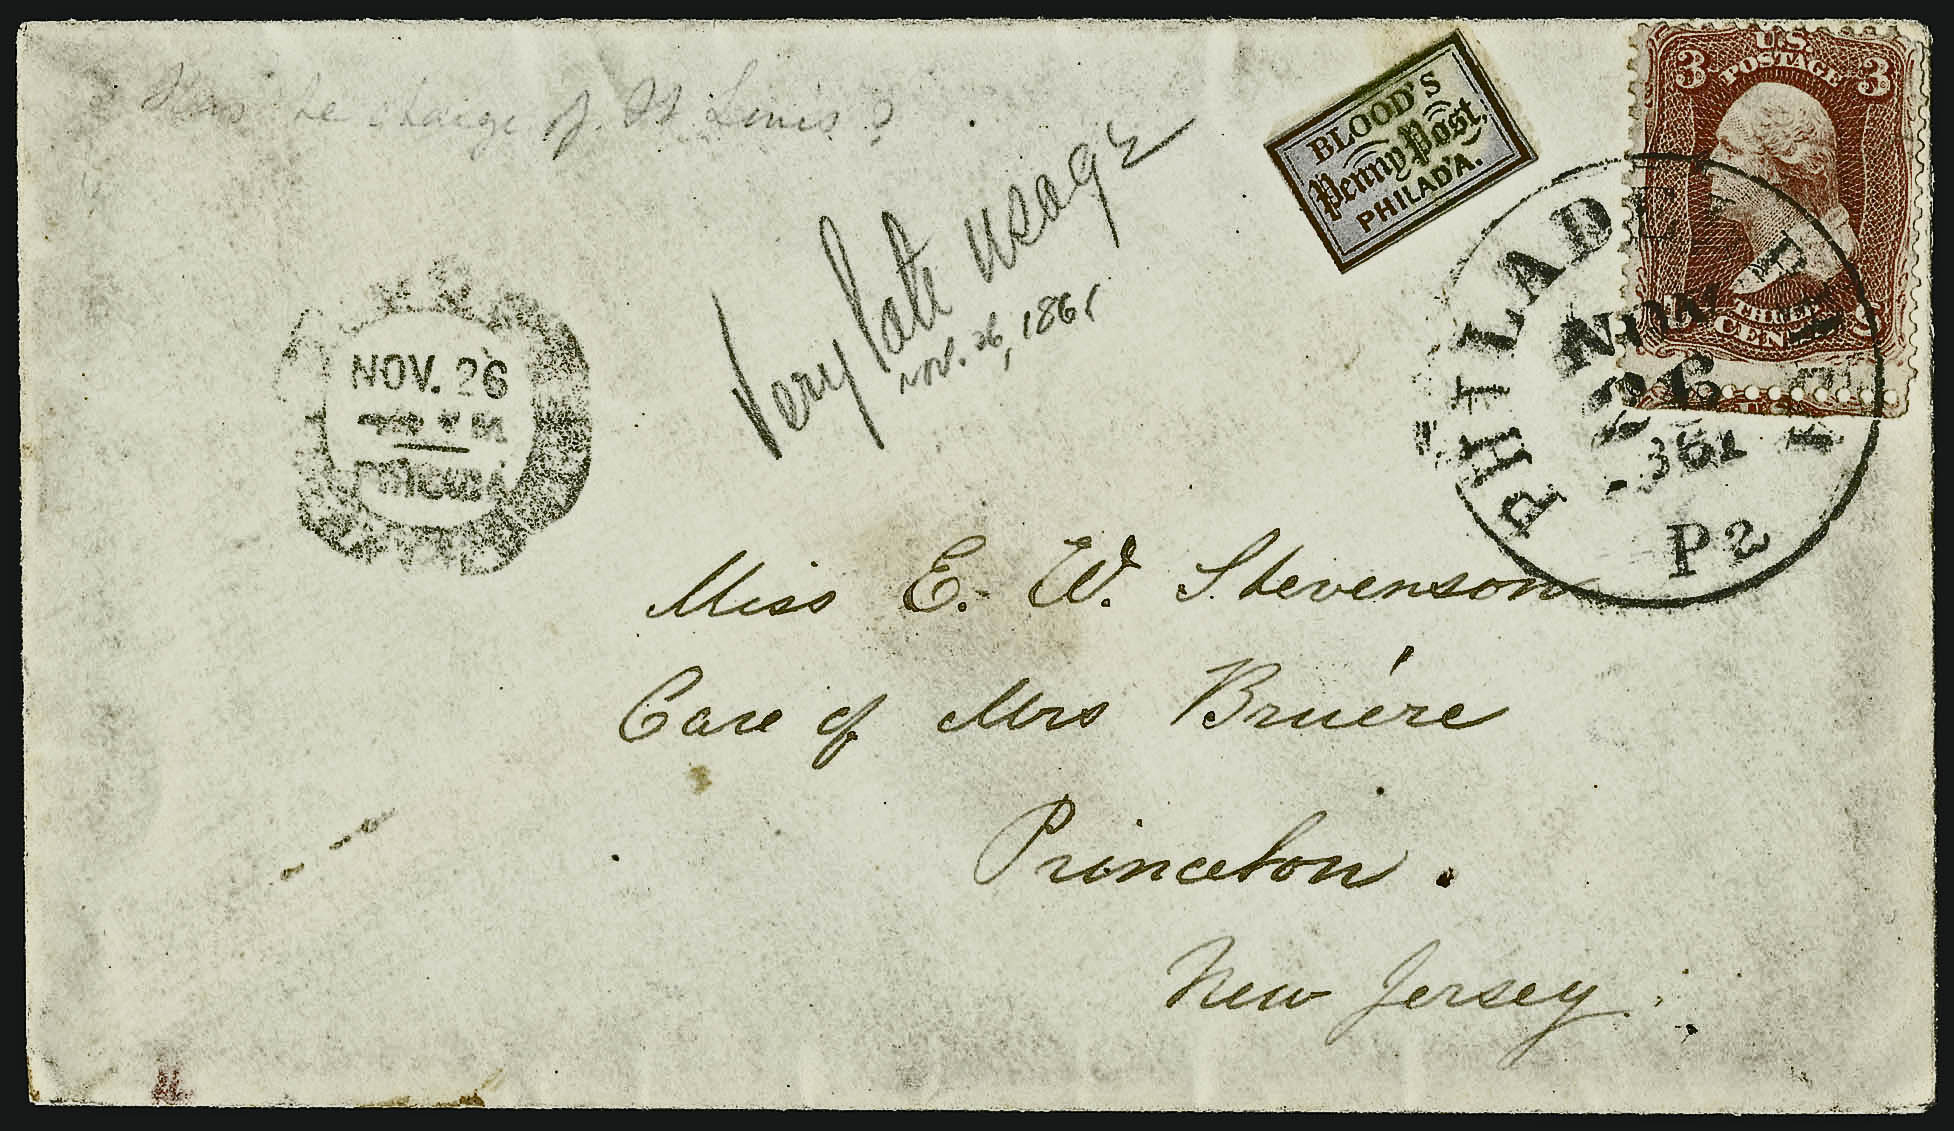 of St Louis?
Very late usage
Nov. 26, 1861
BLOOD'S
Penny Post,
PHILAD'A.
3 U.S. 3
POSTAGE
THREE
CENTS
U.S.
PHILADEL
NOV
26
1861
Pa
NOV. 26
PHILADA
Miss E. W. Stevenson
Care of Mrs Bruére
Princeton.
New Jersey.